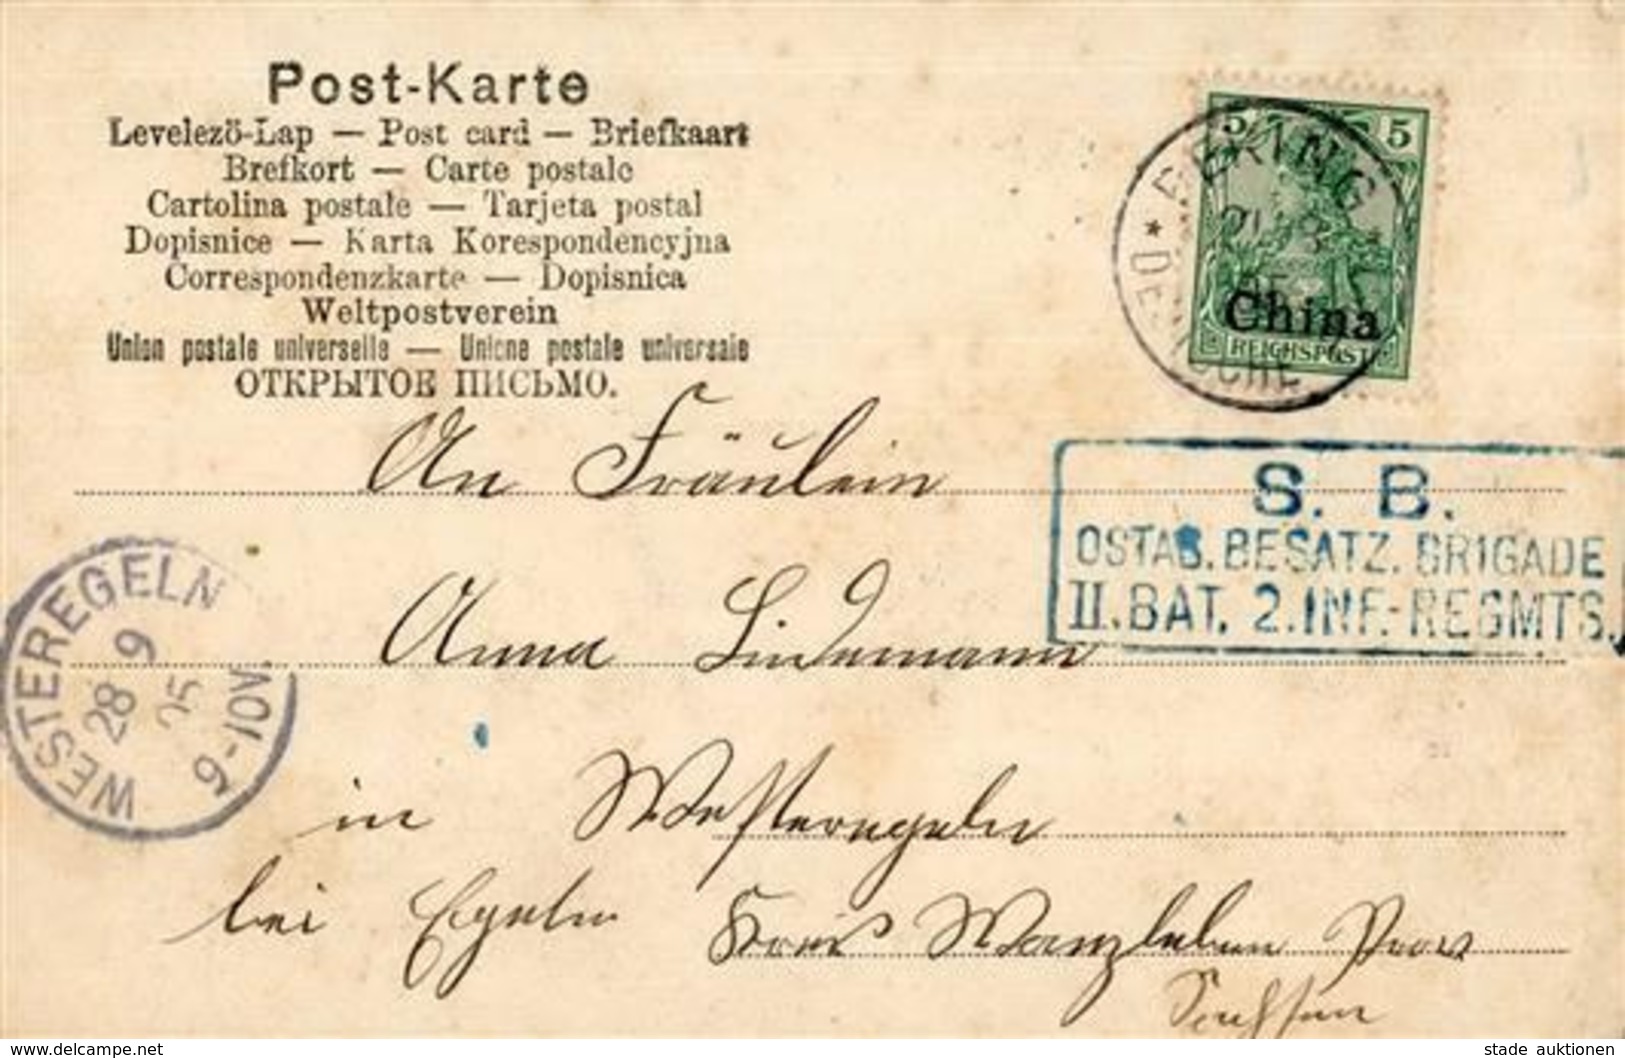 Post-Karte
Levelezö-Lap — Post card — Briefkaart
Brefkort — Carte postale
Cartolina postale — Tarjeta postal
Dopisnice — Karta Korespondencyjna
Correspondenzkarte — Dopisnica
Weltpostverein
Union postale universelle — Unione postale universale
ОТКРЫТОЕ ПИСЬМО.
5 5
China
REICHSPOST
PEKING
DEUTSCHE
S. B.
OSTAS. BESATZ. BRIGADE
II. BAT. 2. INF.-REGMTS.
An Fräulein
Anna Lindemann
WESTEREGELN
28 9
05
9-10V.
in Westeregeln
bei Egeln Kreis Wanzleben Prov
Sachsen
www.delcampe.net
stade auktionen